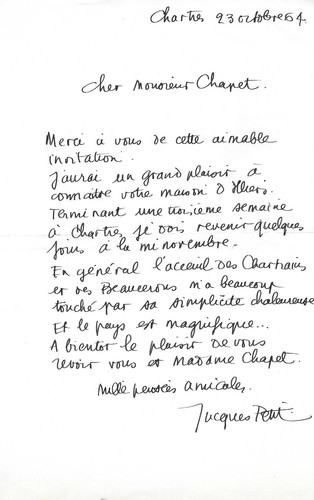 Chartres 23 octobre 64.
Cher Monsieur Chapet.
Merci à vous de cette aimable
invitation.
J'aurai un grand plaisir à
connaître votre maison D'Illiers.
Terminant une troisième semaine
à Chartres je dois revenir quelques
jours à la mi novembre.
En général l'acceuil des Chartrains
et des Beaucerons m'a beaucoup
touché par sa simplicité chaleureuse
Et le pays est magnifique...
A bientôt le plaisir de vous
revoir vous et Madame Chapet.
Mille pensées amicales.
Jacques